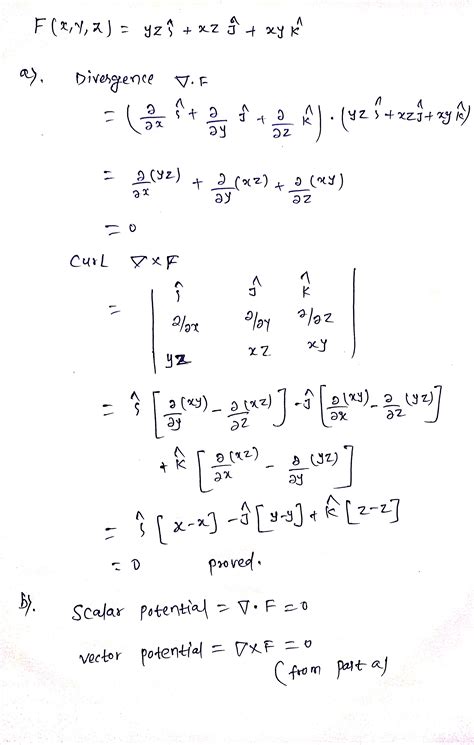 F(x,y,z) = yz î + xz ĵ + xy k̂
a). Divergence ∇.F
= (∂/∂x î + ∂/∂y ĵ + ∂/∂z k̂) . (yz î + xz ĵ + xy k̂)
= ∂(yz)/∂x + ∂/∂y (xz) + ∂(xy)/∂z
= 0
Curl ∇×F
= | î ĵ k̂ |
| ∂/∂x ∂/∂y ∂/∂z |
| yz xz xy |
= î [∂(xy)/∂y - ∂(xz)/∂z] - ĵ [∂(xy)/∂x - ∂/∂z (yz)]
+ k̂ [∂(xz)/∂x - ∂(yz)/∂y]
= î [x-x] - ĵ [y-y] + k̂ [z-z]
= 0 proved.
b). Scalar potential = ∇.F = 0
vector potential = ∇×F = 0
(from part a)